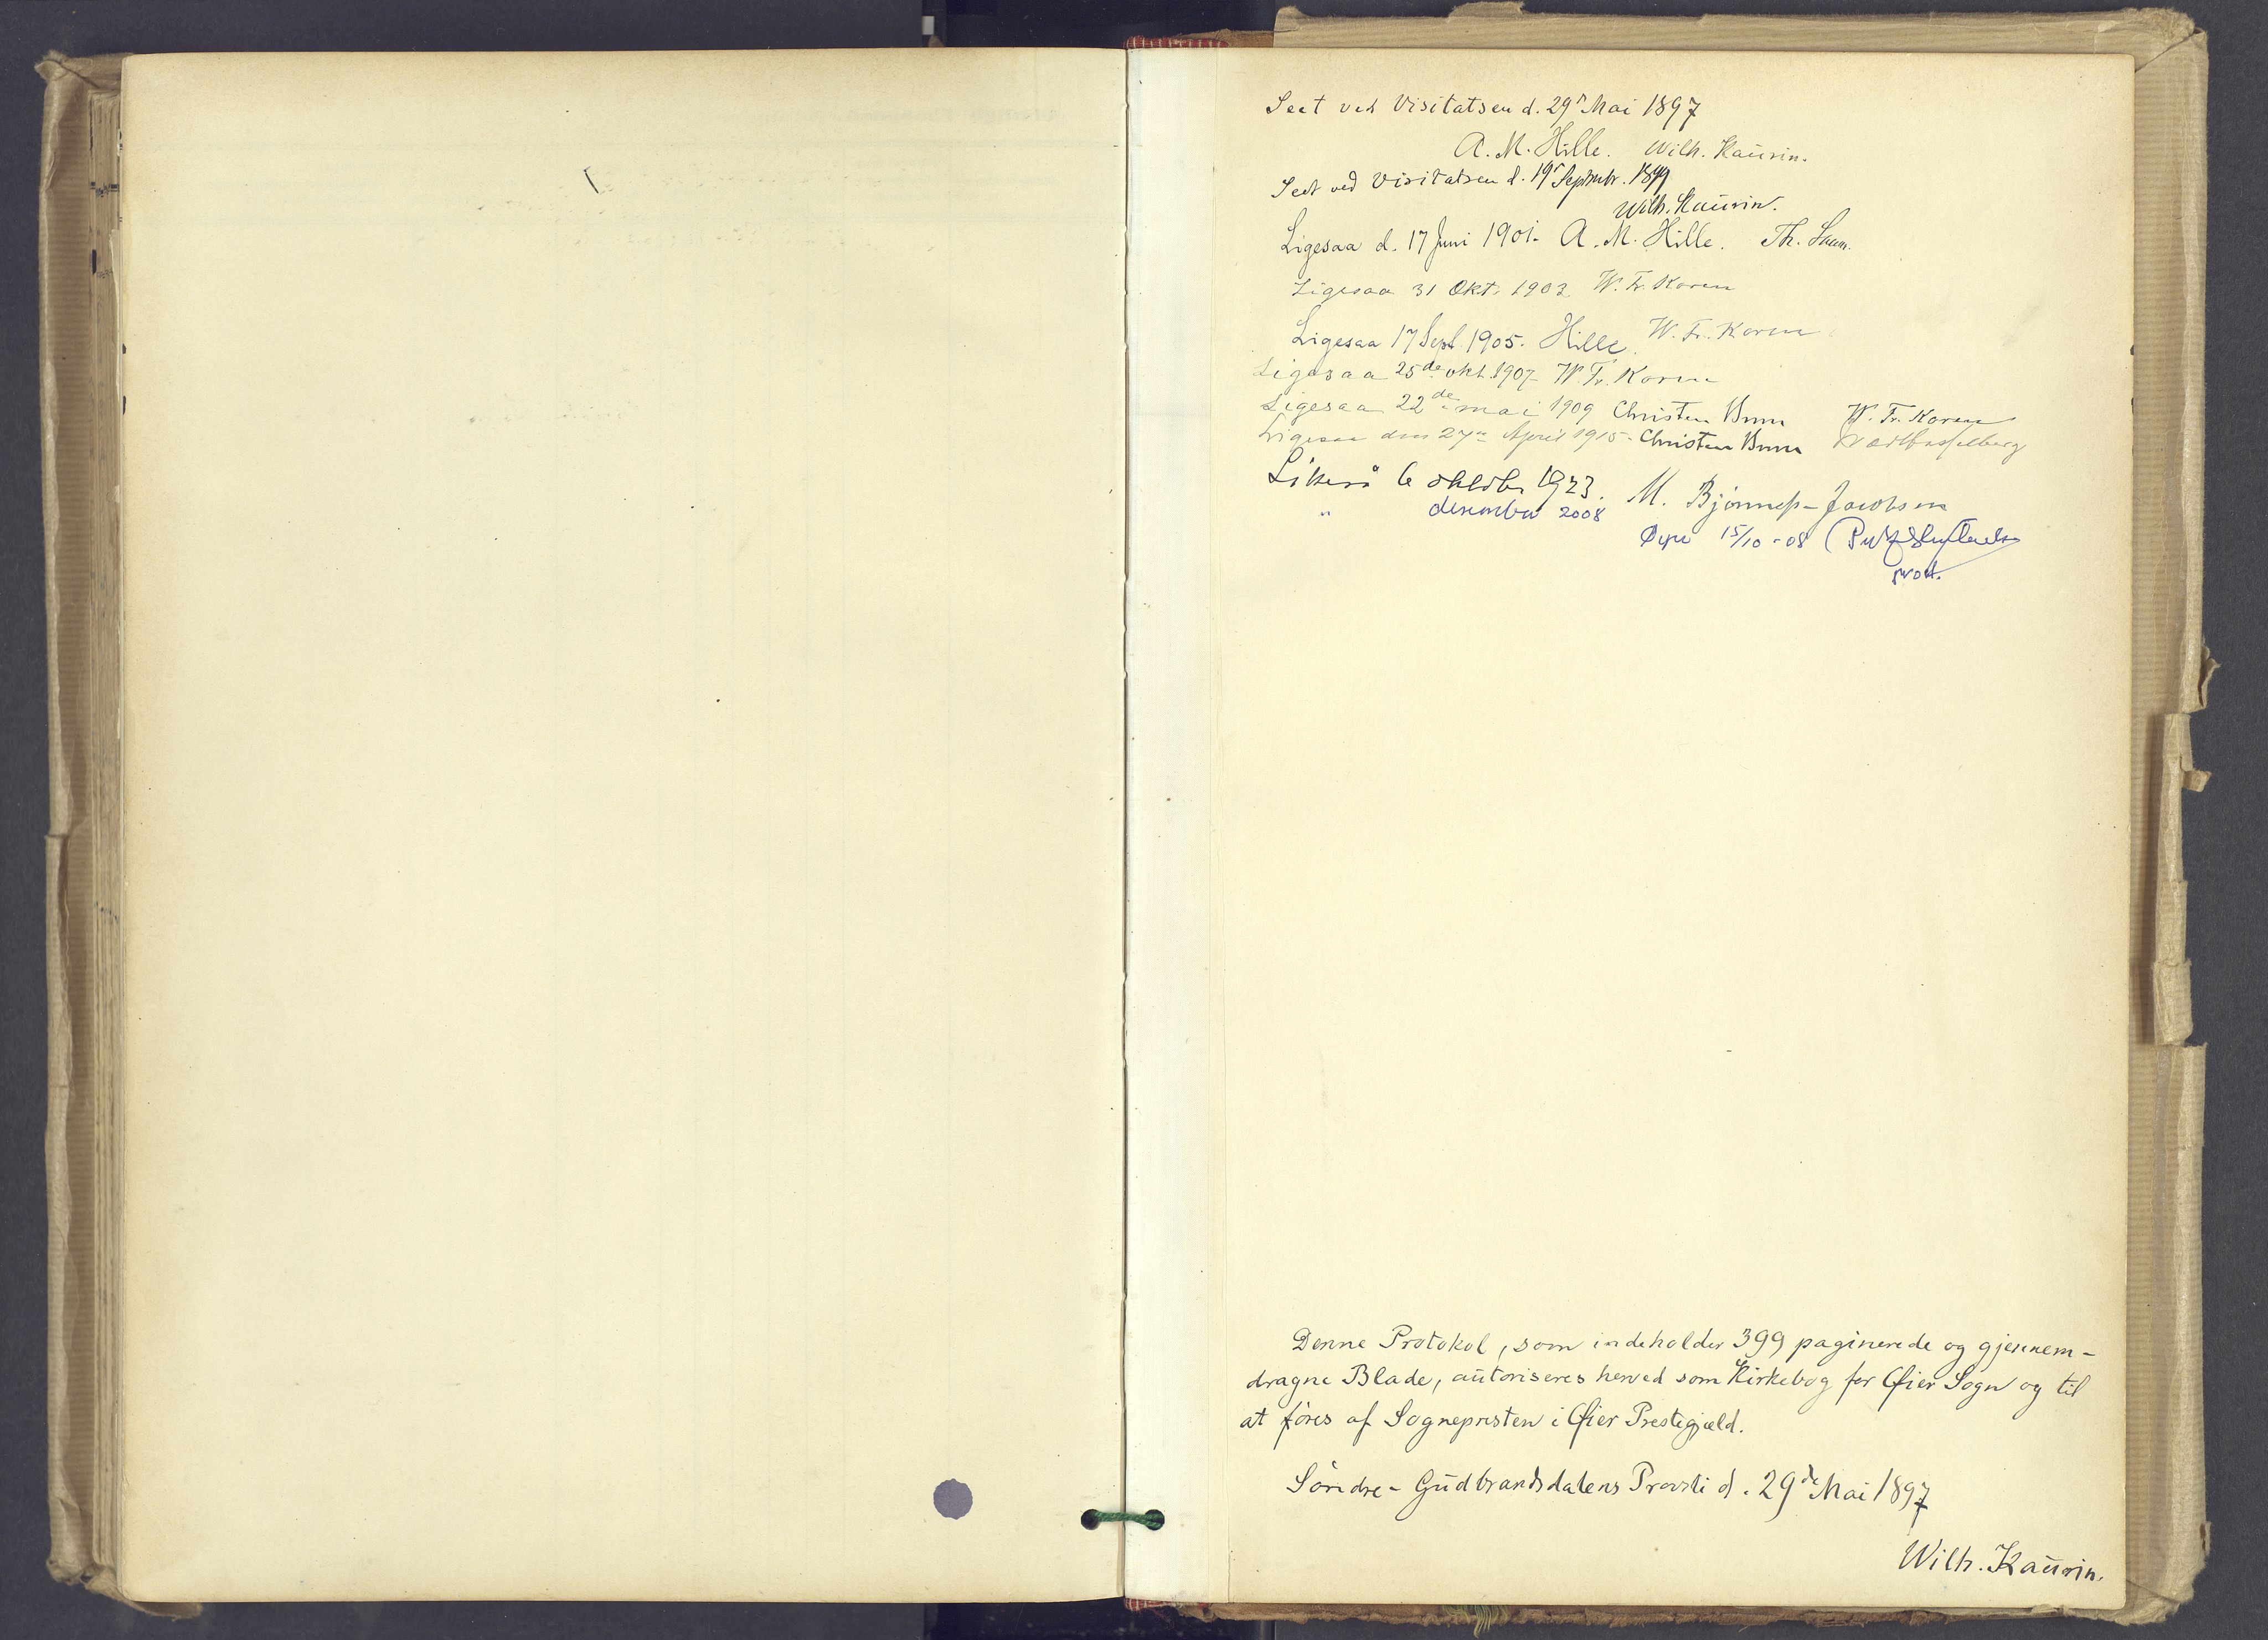 Seet ved Visitatsen d. 29de Mai 1897
A. M. Hille. Wilh. Kaurin.
Seet ved Visitatsen d. 19de Septmbr. 1899
Wilh. Kaurin.
Ligesaa d. 17 Juni 1901. A. M. Hille. Th.
Ligesaa 31 Okt. 1903 W. Fr. Koren
Ligesaa 17 Sept. 1905. Hille. W. Fr. Koren
Ligesaa 25de okt. 1907 W. Fr. Koren
Ligesaa 22de mai 1909 Christen Brun W. Fr. Koren
Ligesaa den 27de April 1915. Christen Brun
Likeså 6 oktobr 1923. M. Bjønnes-Jacobsen
" desember 2008
Øyer 15/10-08
prost.
Denne Protokol, som indeholder 399 paginerede og gjennem-
dragne Blade, autoriseres herved som Kirkebog for Øier Sogn og til
at føres af Sognepresten i Øier Prestegjæld.
Søndre-Gudbrandsdalens Provsti d. 29de Mai 1897
Wilh. Kaurin.